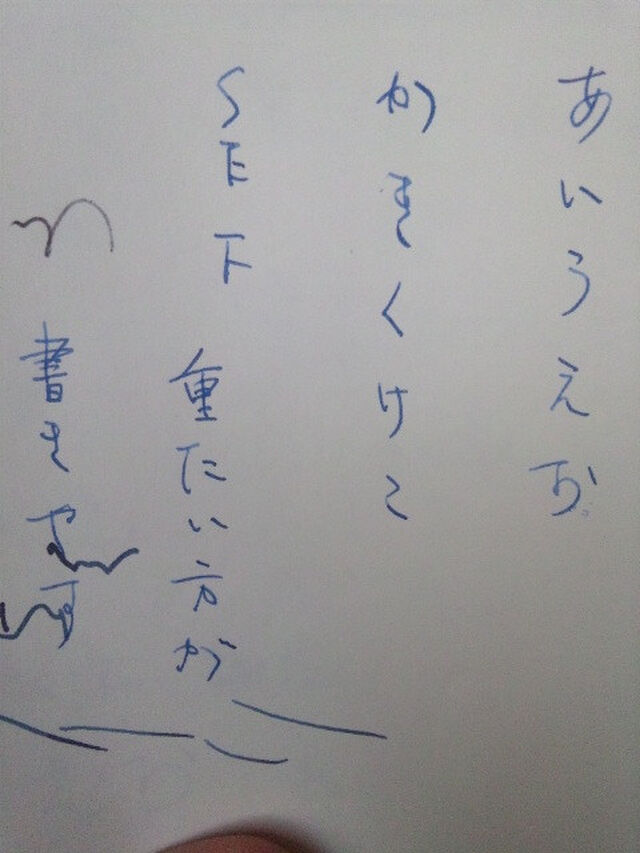 あいうえお
かきくけこ
重たい方が
書きやす